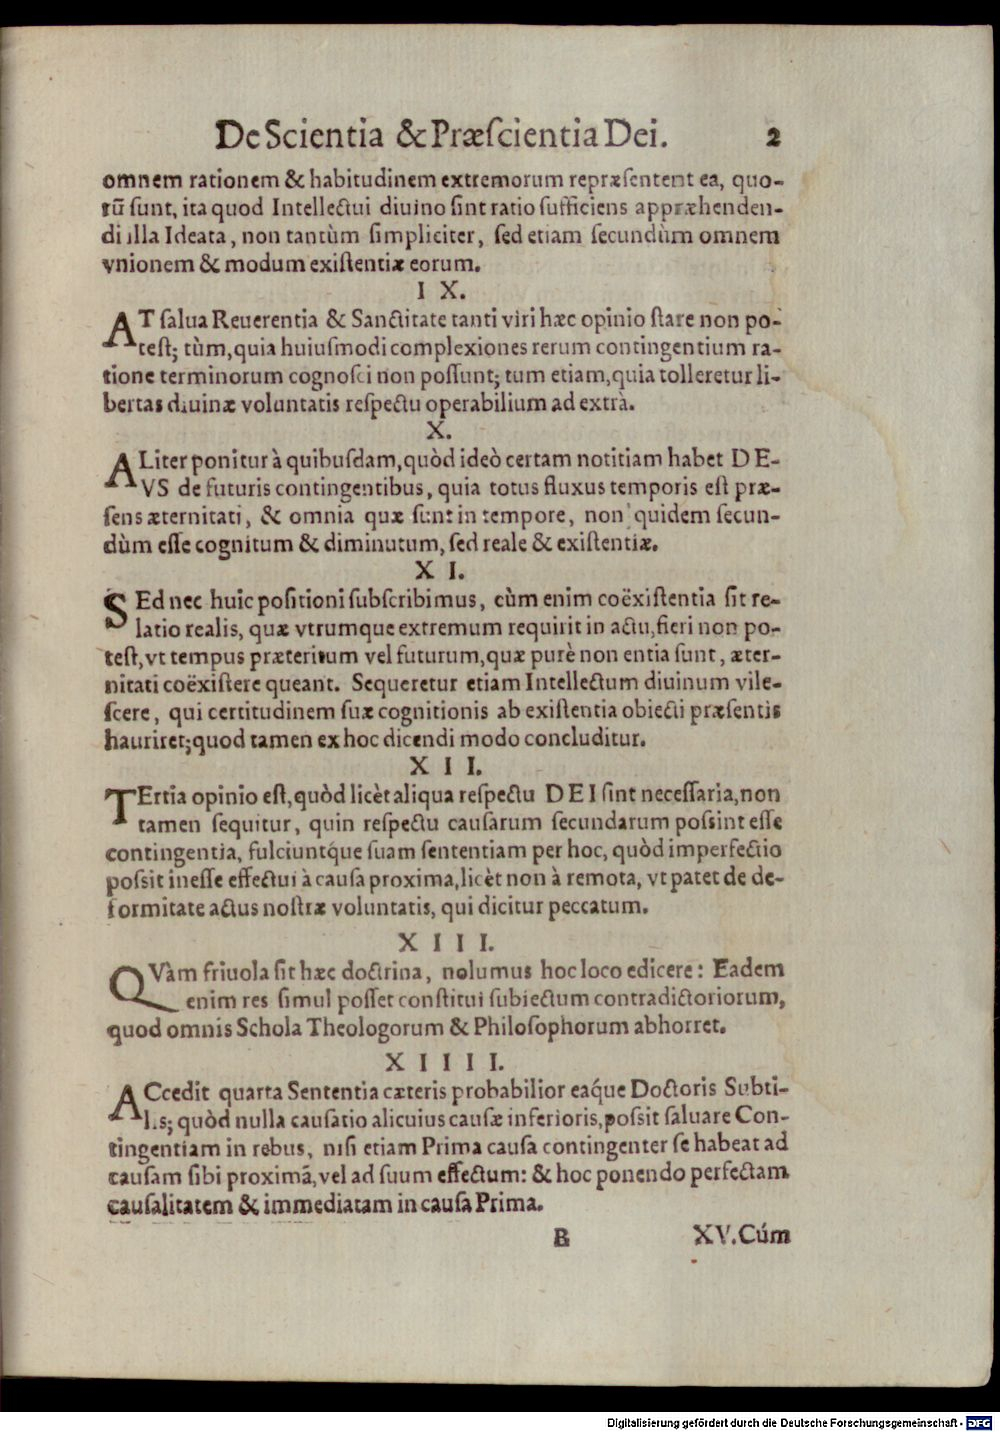 De Scientia & Præſcientia Dei. 2
omnem rationem & habitudinem extremorum repræſentent ea, quo-
rū ſunt, ita quod Intellectui diuino ſint ratio ſufficiens appræhenden-
di illa Ideata, non tantùm ſimpliciter, ſed etiam ſecundùm omnem
vnionem & modum exiſtentiæ eorum.
I X.
AT ſalua Reuerentia & Sanctitate tanti viri hæc opinio ſtare non po-
teſt; tùm, quia huiuſmodi complexiones rerum contingentium ra-
tione terminorum cognoſci non poſſunt; tum etiam, quia tolleretur li-
bertas diuinæ voluntatis reſpectu operabilium ad extrà.
X.
ALiter ponitur à quibuſdam, quòd ideò certam notitiam habet DE-
VS de futuris contingentibus, quia totus fluxus temporis eſt præ-
ſens æternitati, & omnia quæ ſunt in tempore, non quidem ſecun-
dùm eſſe cognitum & diminutum, ſed reale & exiſtentiæ.
X I.
SEd nec huic poſitioni ſubſcribimus, cùm enim coëxiſtentia ſit re-
latio realis, quæ vtrumque extremum requirit in actu, fieri non po-
teſt, vt tempus præteritum vel futurum, quæ purè non entia ſunt, æter-
nitati coëxiſtere queant. Sequeretur etiam Intellectum diuinum vile-
ſcere, qui certitudinem ſuæ cognitionis ab exiſtentia obiecti præſentis
hauriret; quod tamen ex hoc dicendi modo concluditur.
X I I.
TErtia opinio eſt, quòd licèt aliqua reſpectu DEI ſint neceſſaria, non
tamen ſequitur, quin reſpectu cauſarum ſecundarum poſſint eſſe
contingentia, fulciuntq́ue ſuam ſententiam per hoc, quòd imperfectio
poſsit ineſſe effectui à cauſa proxima, licèt non à remota, vt patet de de-
formitate actus noſtræ voluntatis, qui dicitur peccatum.
X I I I.
QVàm friuola ſit hæc doctrina, nolumus hoc loco edicere: Eadem
enim res ſimul poſſet conſtitui ſubiectum contradictoriorum,
quod omnis Schola Theologorum & Philoſophorum abhorret.
X I I I I.
ACcedit quarta Sententia cæteris probabilior eaq́ue Doctoris Subti-
lis; quòd nulla cauſatio alicuius cauſæ inferioris, poſsit ſaluare Con-
tingentiam in rebus, niſi etiam Prima cauſa contingenter ſe habeat ad
cauſam ſibi proximā, vel ad ſuum effectum: & hoc ponendo perfectam
cauſalitatem & immediatam in cauſa Prima.
B XV. Cúm
Digitalisierung gefördert durch die Deutsche Forschungsgemeinschaft - DFG